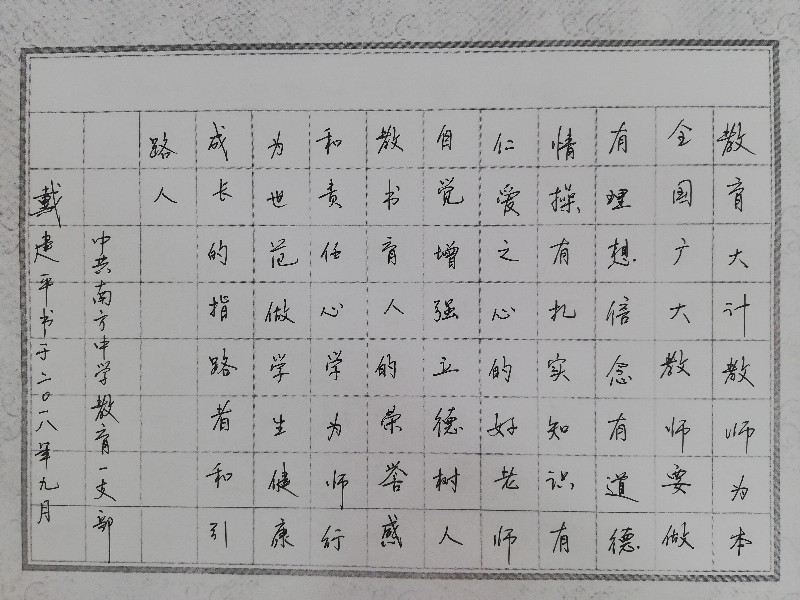 教育大计教师为本
全国广大教师要做
有理想信念有道德
情操有扎实知识有
仁爱之心的好老师
自觉增强立德树人
教书育人的荣誉感
和责任心学为师行
为世范做学生健康
成长的指路者和引
路人
中共南方中学教育一支部
戴建平书于二〇一八年九月